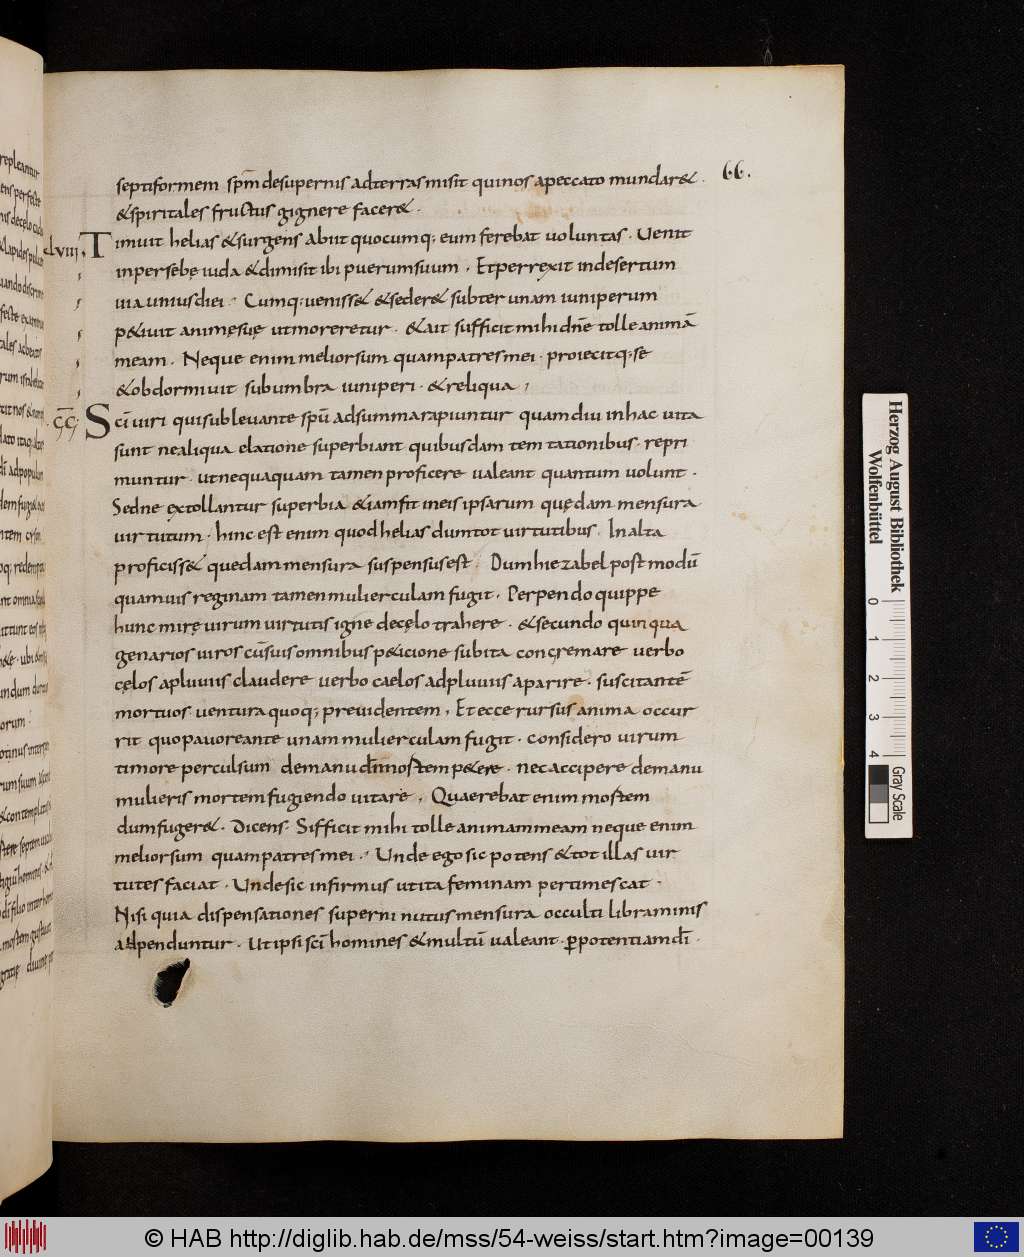 66.
septiformem sp̄m desupernis adterras misit quinos apeccato mundar& .
& spiritales fructus gignere facer& .
clviii, Timuit helias & surgens abiit quocumq; eum ferebat uoluntas . Uenit
inpersẹbe iuda & dimisit ibi puerum suum . Et perrexit indesertum
uia unius diei . Cumq; ueniss& & seder& subter unam iuniperum
p&iuit animęsuę utmoreretur . & ait sufficit mihi dn̄e tolle animā
meam . Neque enim meliorsum quampatres mei . proiecitq; se
& obdormiuit subumbra iuniperi . & reliqua ;
Sc̄i uiri qui subleuante sp̄u adsummarapiuntur quamdiu inhac uita
sunt nealiqua elatione superbiant quibusdam temtationibus . repri
muntur . utnequaquam tamen proficere ualeant quantum uolunt .
Sedne extollantur superbia & iamfit ineis ipsarum quędam mensura
uirtutum . hinc est enim quod helias dumtot uirtutibus . In alta
proficiss& quedam mensura suspensus est . Dum hiezabel post modū
quamuis reginam tamen mulierculam fugit . Perpendo quippe
hunc mirę uirum uirtutis igne decęlo trahere . & secundo quinqua
genarios uiros cū suis omnibus p&icione subita concremare uerbo
cęlos apluuiis claudere uerbo caelos adpluuiis aparire . suscitantē
mortuos uentura quoq; preuidentem . Et ecce rursus anima occur
rit quo pauoreante unam mulierculam fugit . considero uirum
timore perculsum demanu dn̄i mortem p&ere . nec accipere demanu
mulieris mortem fugiendo uitare . Quaerebat enim mortem
dum fuger& . Dicens . Sifficit mihi tolle animam meam neque enim
meliorsum quampatres mei . Unde ego sic potens & tot illas uir
tutes faciat . Unde sic infirmus ut ita feminam pertimescat .
Nisi quia dispensationes superni nutus mensura occulti libraminis
adpenduntur . Ut ipsi sc̄i homines & multū ualeant . ꝑ potentiam dī .
Herzog August Bibliothek
Wolfenbüttel
0 1 2 3 4
Gray Scale
© HAB http://diglib.hab.de/mss/54-weiss/start.htm?image=00139